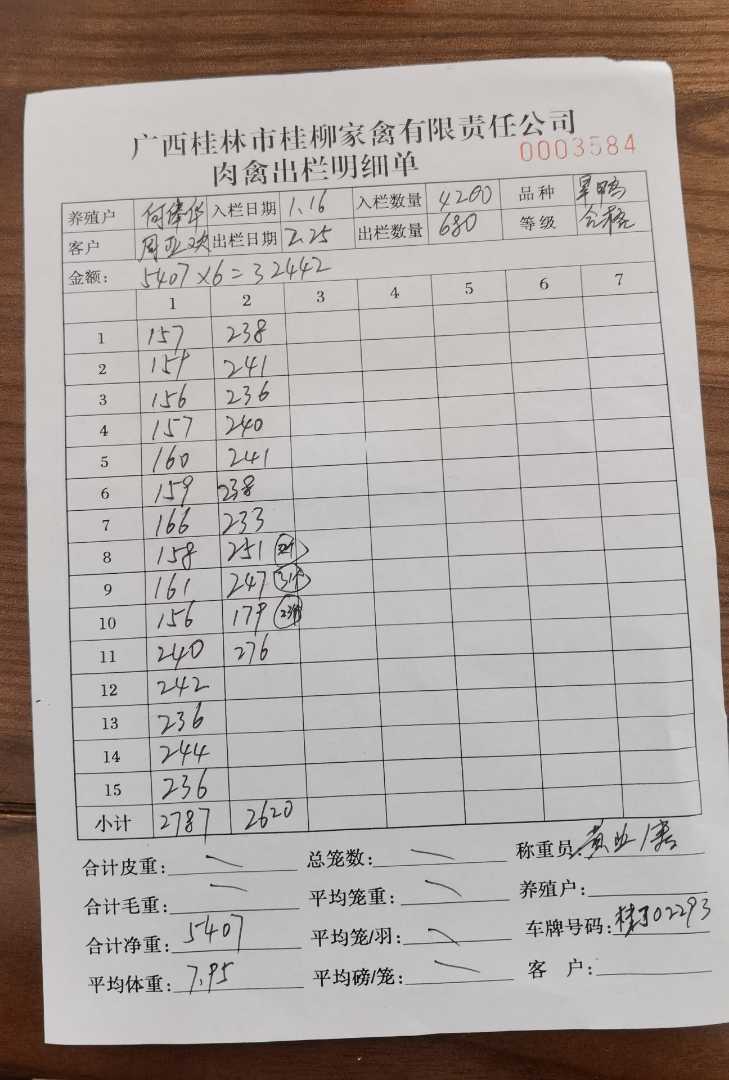 广西桂林市桂柳家禽有限责任公司
肉禽出栏明细单 0003584
养殖户 何 华 入栏日期 1.16 入栏数量 4200 品种 鸭
客户 周亚 出栏日期 2.25 出栏数量 680 等级 合格
金额: 5407×6=32442
1 2 3 4 5 6 7
1 157 238
2 159 241
3 156 236
4 157 240
5 160 241
6 159 238
7 166 233
8 158 251
9 161 247
10 156 179
11 240 276
12 242
13 236
14 244
15 236
小计 2787 2620
合计皮重: 总笼数: 称重员: 黄
合计毛重: 平均笼重: 养殖户:
合计净重: 5407 平均笼/羽: 车牌号码: 桂J02293
平均体重: 7.95 平均磅/笼: 客 户: